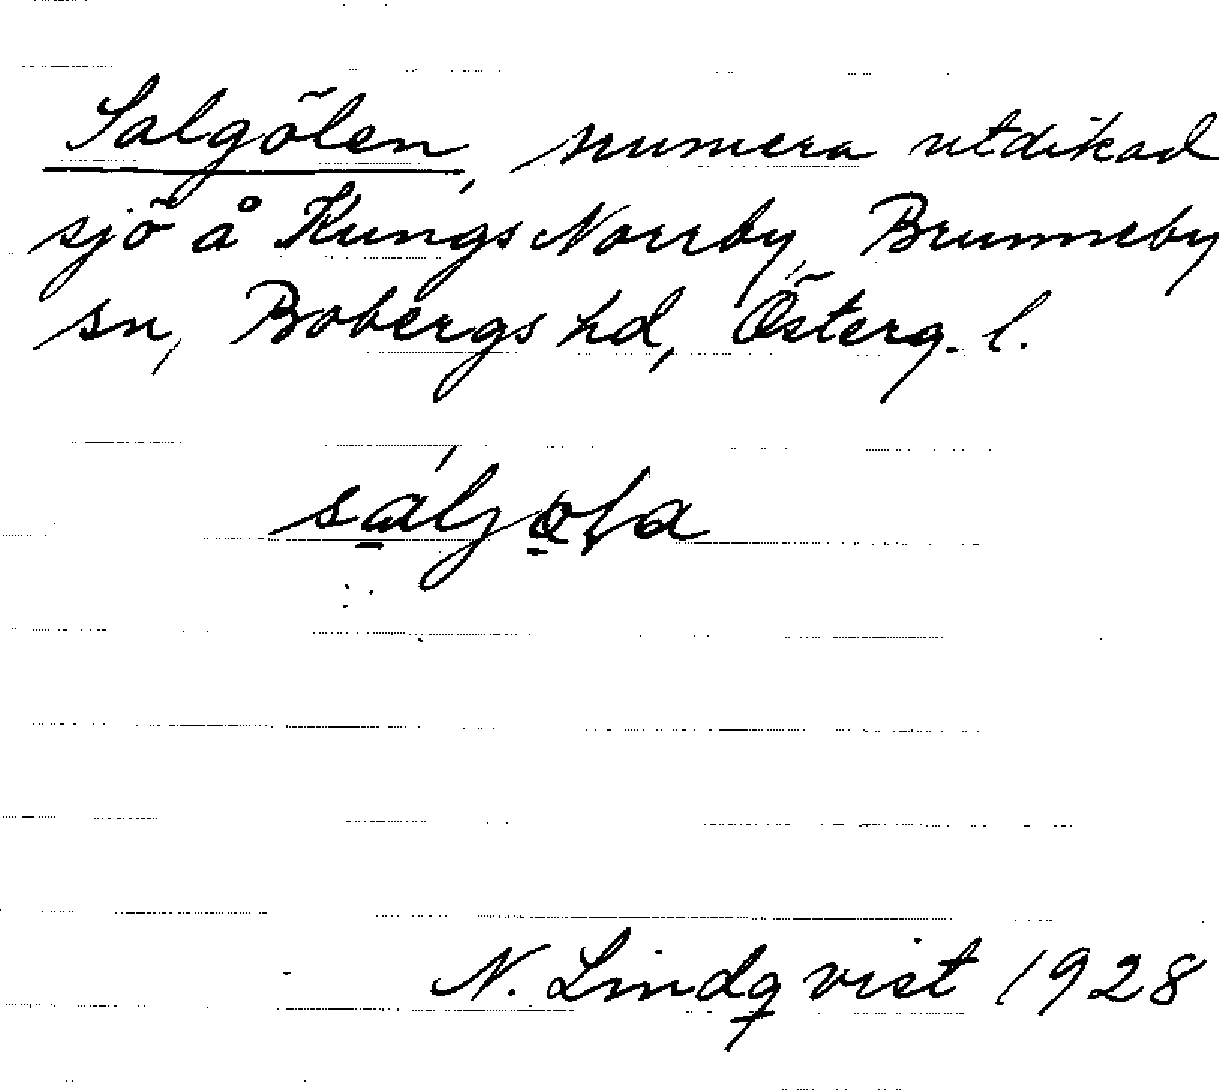 Salgölen, numera utdikad
sjö å Kungs Norrby, Brunneby
sn, Bobergs hd, Österg. l.
N. Lindqvist 1928